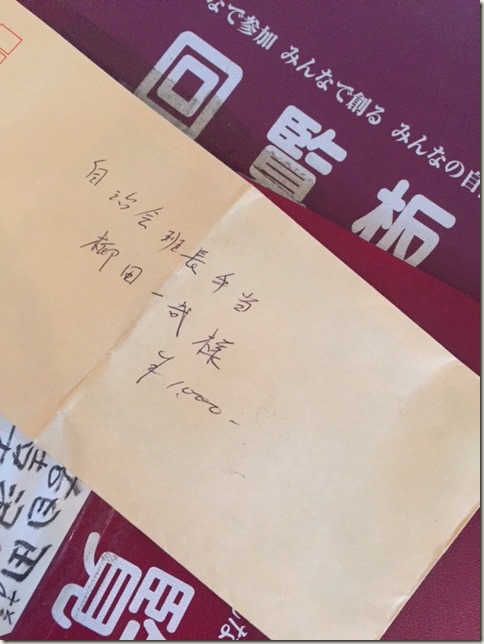 なで参加 みんなで創る みんなの自
回覧板
自治会班長手当
柳田一哉様
¥1,000-
覧